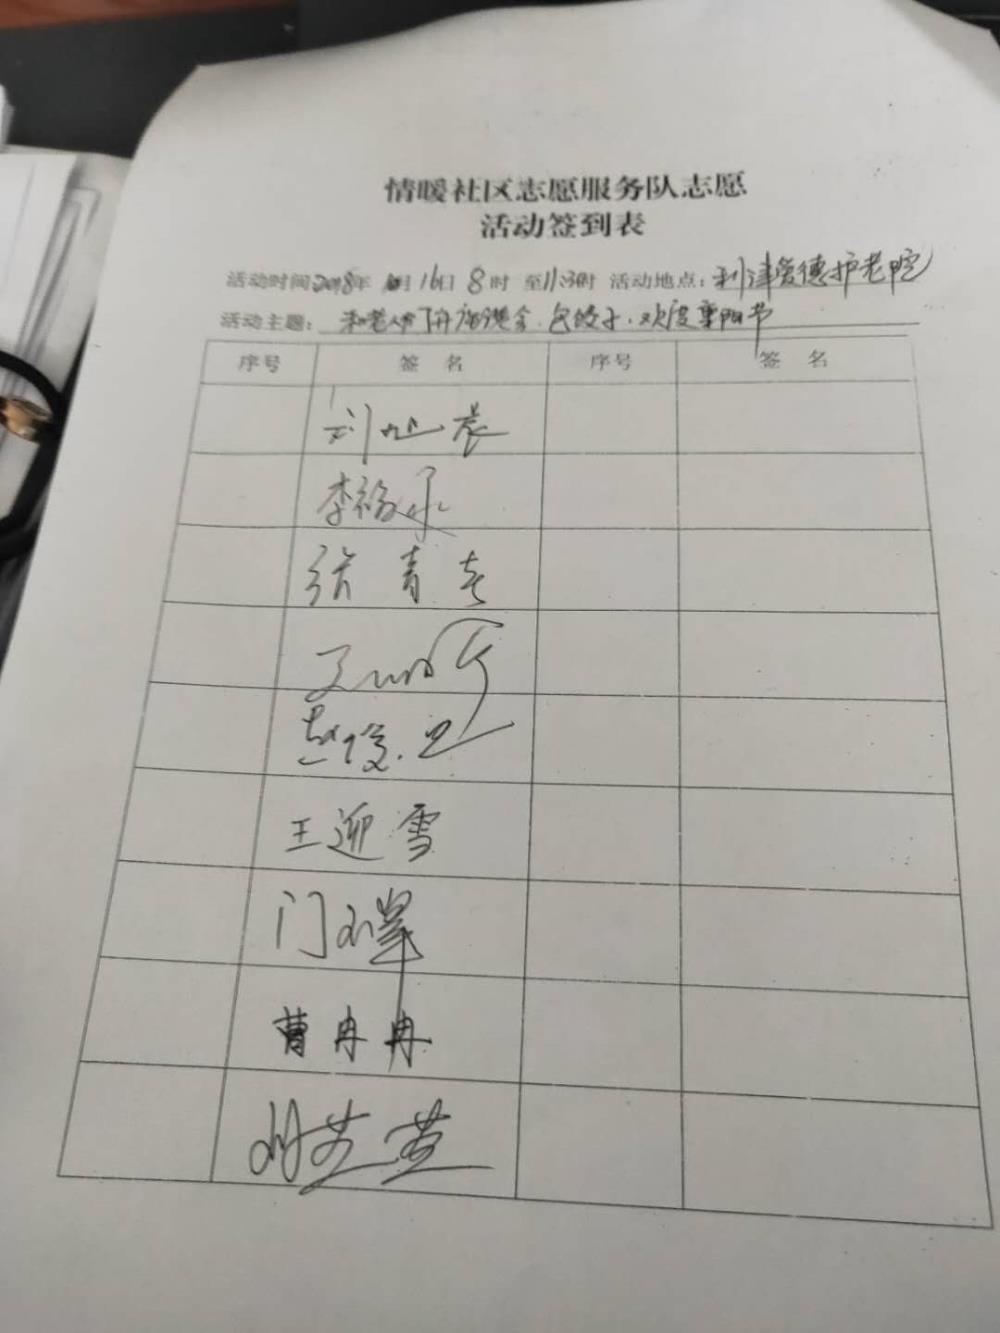 情暖社区志愿服务队志愿
活动签到表
活动时间2018年10月16日8时 至11:30时 活动地点:利津爱德护老院
活动主题: 和老人 包饺子、欢度重阳节
序号 签 名 序号 签 名
刘旭晨
李裕永
张青春
王
赵俊卫
王迎雪
门
曹冉冉
胡芝芝